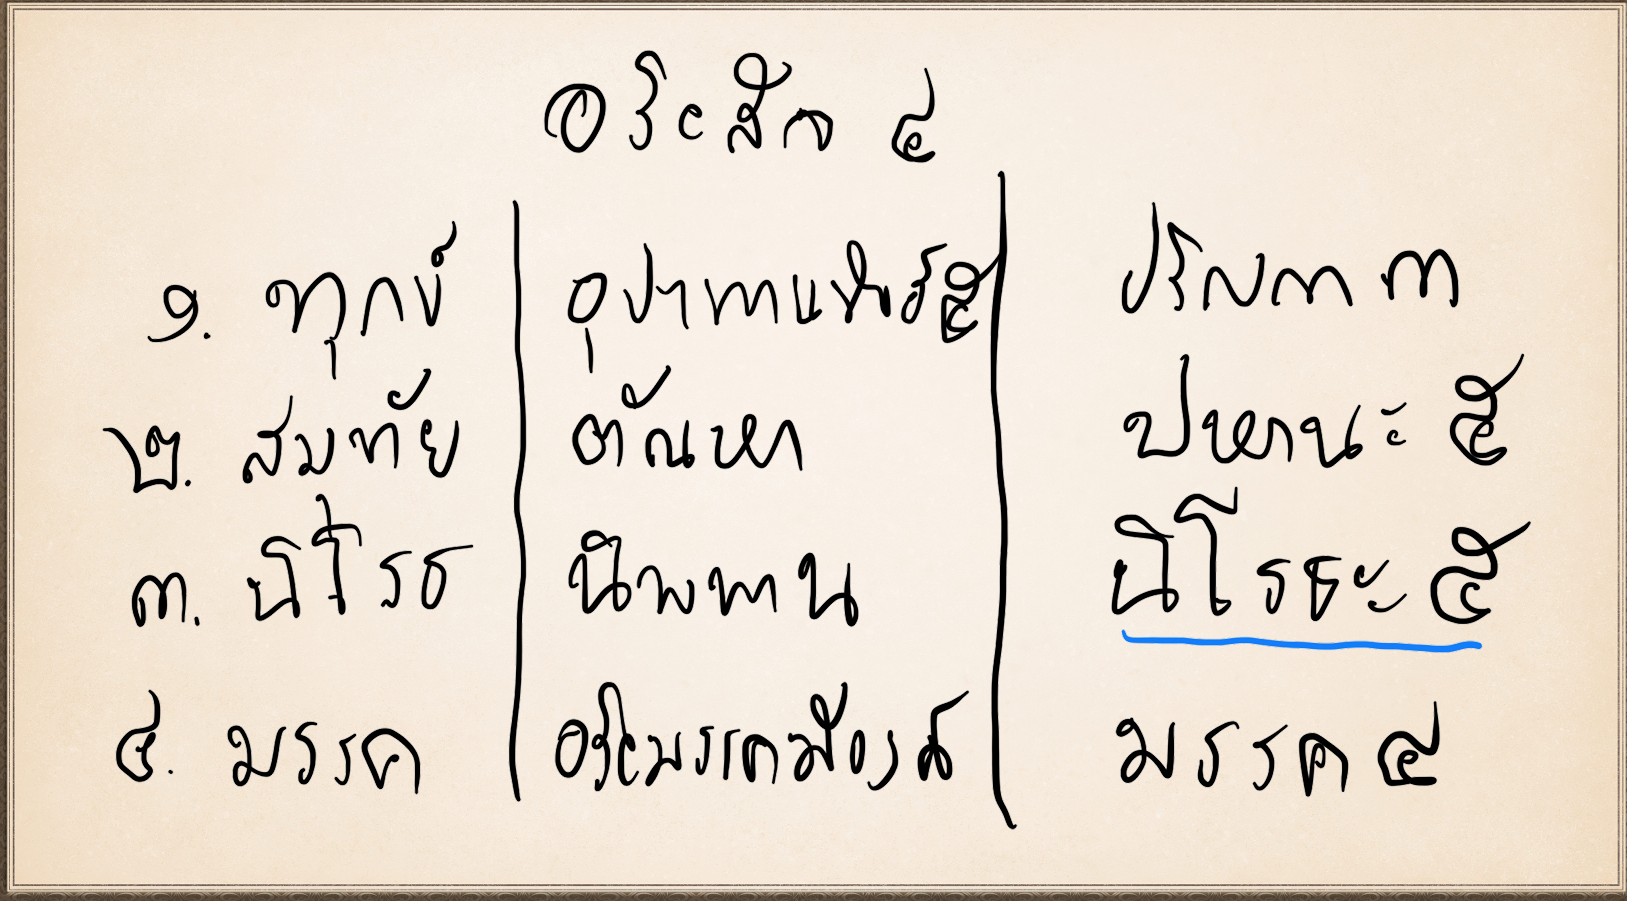 อริะสัก ๔
๑. ทุกข์ อุปาทานขันธ์ ๕ ปริญญา ๓
๒. สมุทัย ตัณหา ปหานะ ๕
๓. นิโรธ นิพพาน นิโรธะ ๕
๔. มรรค อริยมรรคมีองค์ ๘ มรรค ๔